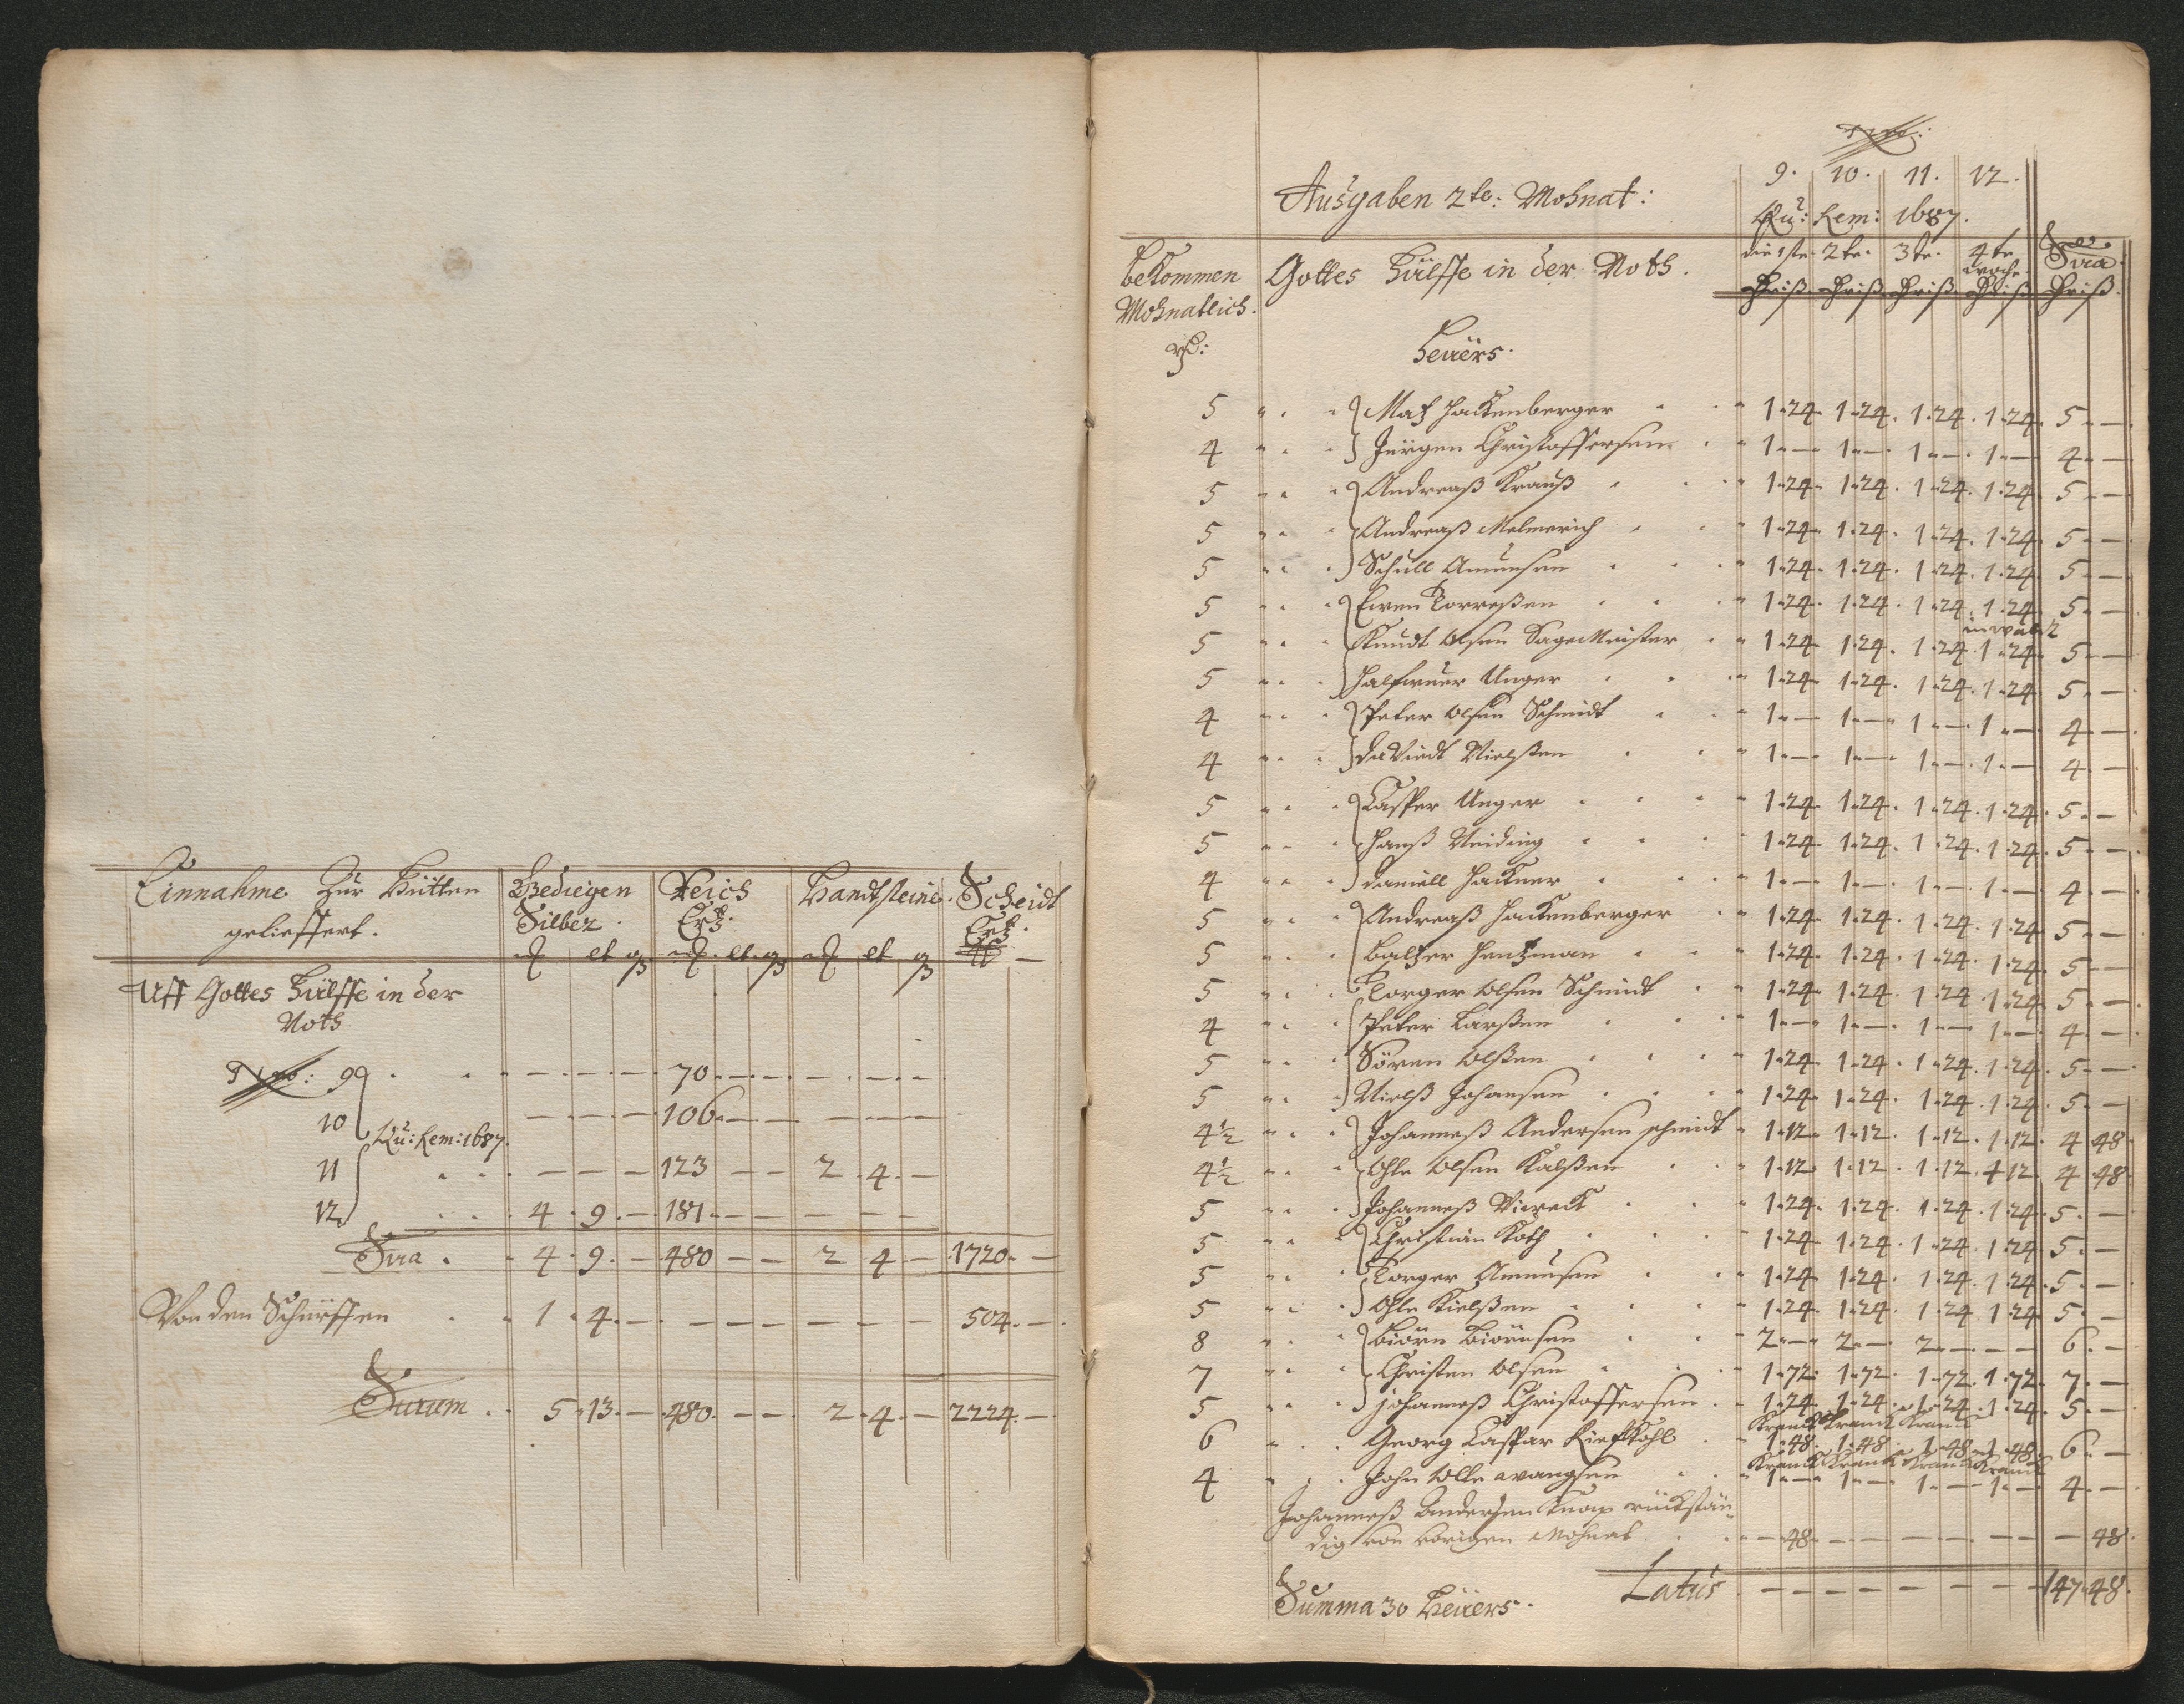 Einnahme Zur Hütten
geliefsert.
Gediegen
Silber.
Reich
Ertz.
Handtsteine.
Scheidt
Ertz.
lt
lt
lt
Uff Gottes Hülffe in der
Noth
No: 9 . . — — — 70 — — — — —
10 — — — 106 — — — — —
Qu: Rem: 1687.
11 . . — — — 123 — — 2 . 4 . —
12 . . . 4 . 9 . — 181 — — — — —
Sũa . . 4 . 9 . — 480 — — 2 4 — 1720. —
Von den Schürffen . . 1 . 4 . — — — — — — — 504. —
Sũum . . 5 . 13. — 480. — — 2 . 4 . — 2224. —
No:
9. 10. 11. 12.
Ausgaben 2te: Mohnat:
Qu: Rem: 1687.
die 1ste. 2te. 3te. 4te
woche.
Sũa.
bekommen
Mohnatlich.
rd:
Gottes Hülffe in der Noth.
Heüers.
5 Matz Hackenberger 1.24. 1.24. 1.24. 1.24. 5. —
4 Jürgen Christoffersen 1. — 1. — 1. — 1. — 4. —
5 Andreaß Krauß 1.24. 1.24. 1.24. 1.24. 5. —
5 Andreaß Melmerich 1.24. 1.24. 1.24. 1.24. 5. —
5 Schull Amunsen 1.24. 1.24. 1.24. 1.24. 5. —
5 Even Torreßen 1.24. 1.24. 1.24. 1.24. 5. —
5 Knudt Olsen SageMeister 1.24. 1.24. 1.24. 1.24. 5. —
5 Halfwuer Unger 1.24. 1.24. 1.24. 1.24. 5. —
4 Peter Olsen Schmidt 1. — 1. — 1. — 1. — 4. —
4 Davidt Nielßen 1. — 1. — 1. — 1. — 4. —
5 Casper Unger 1.24. 1.24. 1.24. 1.24. 5. —
5 Hanß Neiding 1.24. 1.24. 1.24. 1.24. 5. —
4 Daniell Hackner 1. — 1. — 1. — 1. — 4. —
5 Andreaß Hackenberger 1.24. 1.24. 1.24. 1.24. 5. —
5 Baltzer Hentzman 1.24. 1.24. 1.24. 1.24. 5. —
5 Torger Olsen Schmidt 1.24. 1.24. 1.24. 1.24. 5. —
4 Peter Larßen 1. — 1. — 1. — 1. — 4. —
5 Sören Olßen 1.24. 1.24. 1.24. 1.24. 5. —
5 Nielß Johansen 1.24. 1.24. 1.24. 1.24. 5. —
4½ Johanneß Andersen schmidt 1.12. 1.12. 1.12. 1.12. 4 48.
4½ Ohle Olsen Kalßen 1.12. 1.12. 1.12. 1.12. 4 48.
5 Johanneß Viereck 1.24. 1.24. 1.24. 1.24. 5. —
5 Christian Koth 1.24. 1.24. 1.24. 1.24. 5. —
5 Torger Amunsen 1.24. 1.24. 1.24. 1.24. 5. —
5 Ohle Kielßen 1.24. 1.24. 1.24. 1.24. 5. —
8 Biörn Biörnsen 2. — 2. — 2. — — — 6. —
7 Christen Olsen 1.72. 1.72. 1.72. 1.72. 7. —
5 Johanneß Christoffersen 1.24. 1.24. 1.24. 1.24. 5. —
Kranck Kranck Kranck
6 Georg Caspar 1.48. 1.48. 1.48. 1.48. 6. —
Kranck Kranck Kranck Kranck
4 John Olle 1. — 1. — 1. — 1. — 4. —
Johanneß Andersen Knap rückstän
dig von vorigen Mohnat — 48. — — — — — — 48.
Summa 30 Heüers. Latus — — — — — — — 147. 48.